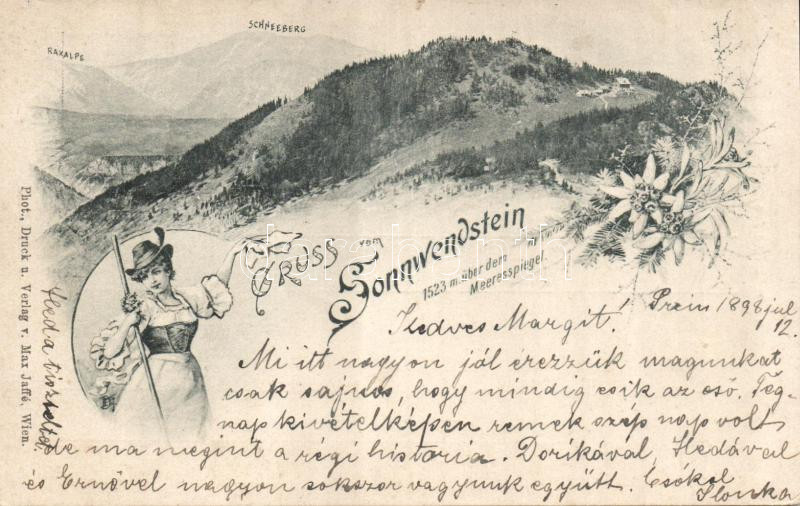 SCHNEEBERG
RAXALPE
GRUSS vom
Sonnwendstein
1523 m. über dem
Meeresspiegel.
Phot., Druck u. Verlag v. Max Jaffé, Wien.
Prein 1898 jul
12.
Kedves Margit!
Mi itt nagyon jól érezzük magunkat
csak sajnos, hogy mindig esik az eső. Teg-
nap kivételképen remek szép nap volt
de ma megint a régi historia. Dorikával, Hedával
és Ernővel nagyon sokszor vagyunk együtt. Csókol
Ilonka
Heda tisztelteti